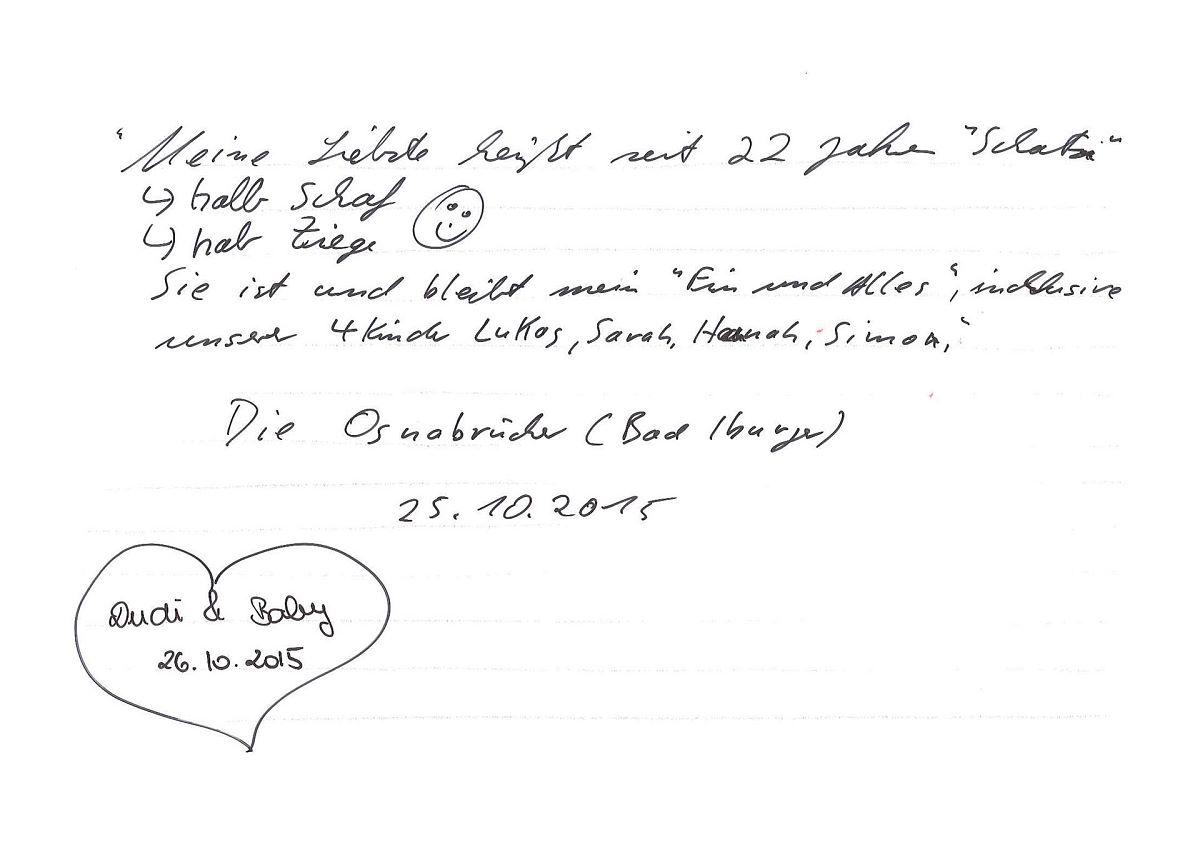 "Meine Liebste heißt seit 22 Jahren "Schatzi"
↳ halb Schaf
↳ halb Ziege
Sie ist und bleibt mein "Ein und Alles", inklusive
unserer 4 Kinder Lukas, Sarah, Hannah, Simon,"
Die Osnabrücker (Bad Iburger)
25.10.2015
Dudi & Baby
26.10.2015